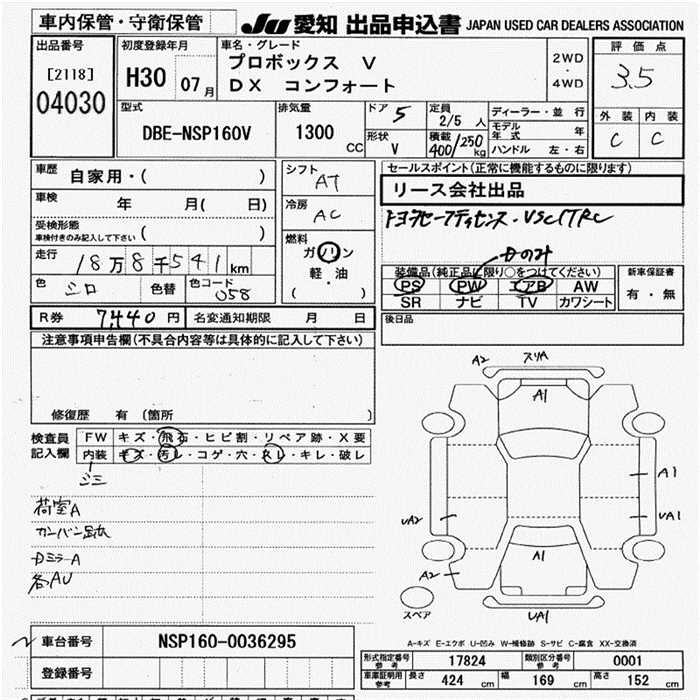 車内保管・守衛保管
JU 愛知 出品申込書 JAPAN USED CAR DEALERS ASSOCIATION
出品番号
[2118]
04030
初度登録年月
H30 07月
車名・グレード
プロボックス V
DX コンフォート
2WD
・
4WD
評価点
3.5
外装 内装
C C
型式
DBE-NSP160V
排気量
1300
CC
ドア 5
形状 V
定員 2/5 人
積載 400/250 kg
ディーラー・並行
モデル年式 年
ハンドル 左・右
車歴 自家用・( )
車検 年 月( 日)
受検形態
車検付きのみ記入して下さい ( )
走行 18万8千541km
色 シロ 色替 色コード 058
シフト
AT
冷房
AC
燃料
ガソリン
軽・油
( )
セールスポイント(正常に機能するものに限ります)
リース会社出品
トヨタセーフティセンス・VSC/TRC
Dのみ
装備品(純正品に限り○をつけてください)
PS PW エアB AW
SR ナビ TV カワシート
新車保証書
有・無
R券 7,440 円 名変通知期限 月 日
後日品
注意事項申告欄(不具合内容等は具体的に記入して下さい)
修復歴 有(箇所 )
検査員記入欄
FW キズ・飛石・ヒビ割・リペア跡・X要
内装 キズ・汚レ・コゲ・穴・スレ・キレ・破レ
シミ
荷室A
カンバン跡
DミラーA
各AU
A2 スリA
A1
A1
UA1
UA2
A1
A2
UA1
スペア
A-キズ E-エクボ U-凹み W-補修跡 S-サビ C-腐食 XX-交換済
車台番号 NSP160-0036295
登録番号
形式指定番号参考 17824 類別区分番号参考 0001
車庫証明用参考 長さ 424 cm 幅 169 cm 高さ 152 cm